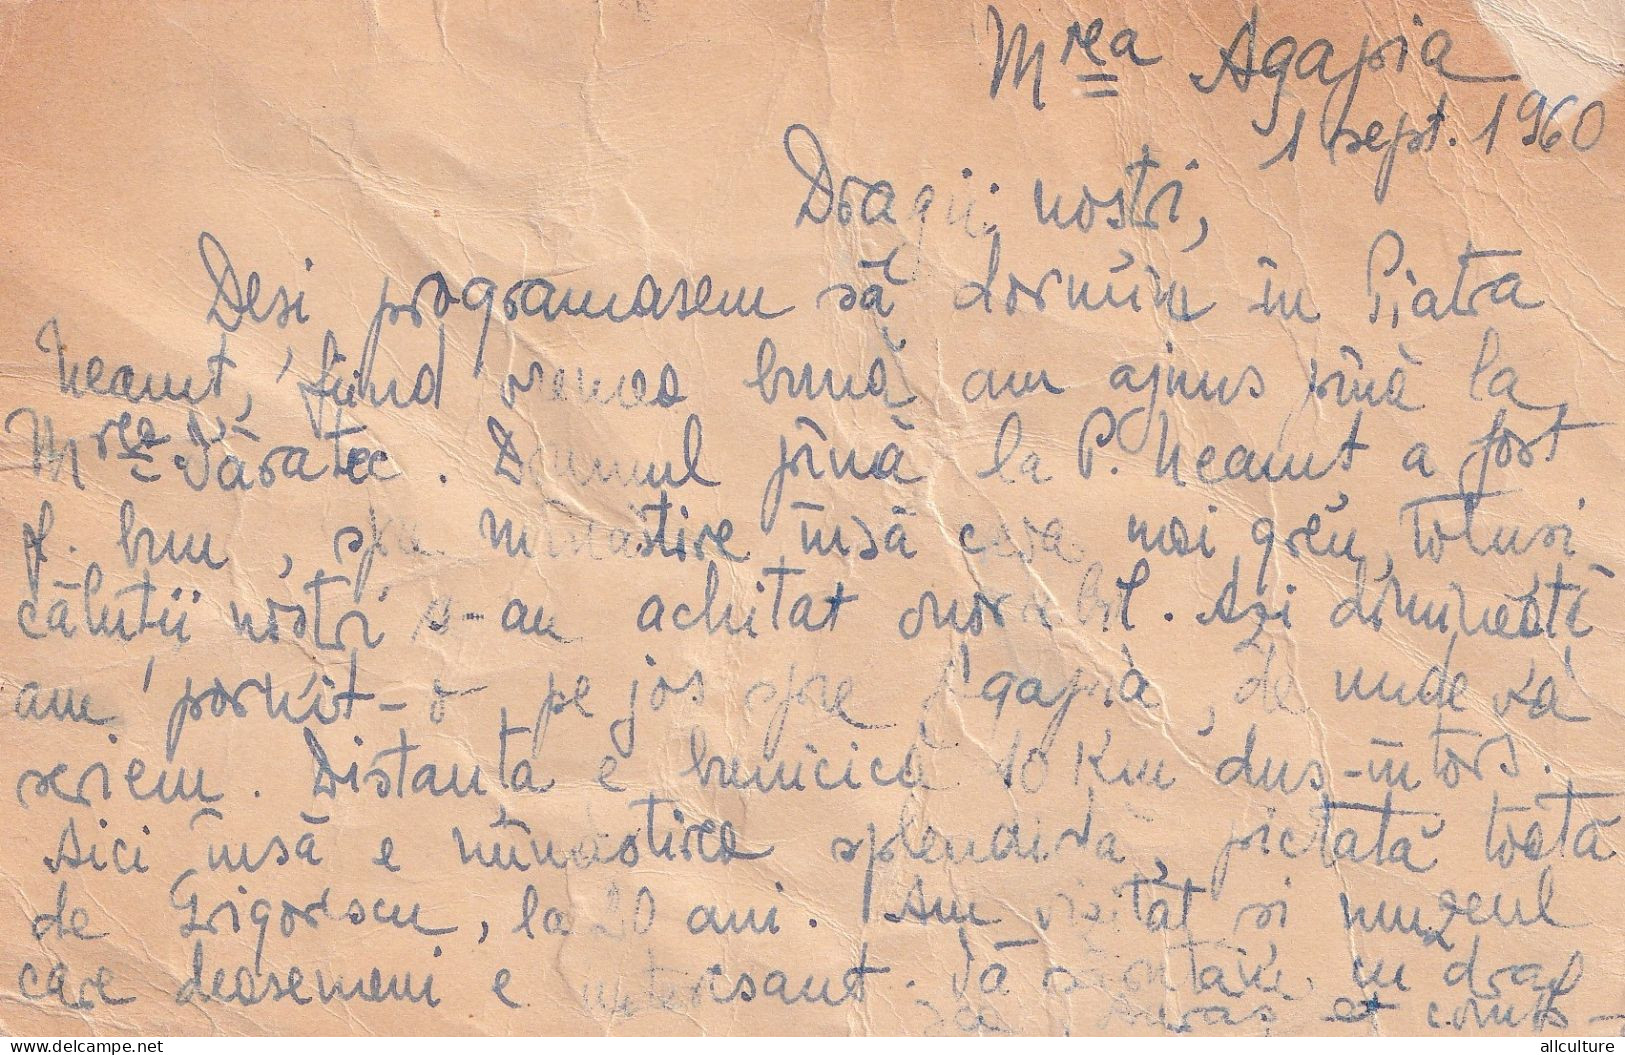 Mrea Agapia
1 sept. 1960
Dragii nostri,
Desi programasem să dormim în Piatra
Neamt, fiind vremea bună am ajuns pînă la
Mrea Văratec. Drumul pînă la P. Neamt a fost
f. bun, spre mînăstire însă ceva mai greu, totusi
căluții nostri s-au achitat onorabil. Azi dimineată
am pornit-o pe jos spre Agapia, de unde vă
scriem. Distanța e bunicică 10 Km dus-întors.
Aici însă e mînăstirea splendidă, pictată toată
de Grigorescu, la 20 ani. Am vizitat si muzeul
care deasemeni e interesant. Vă sărutăm cu drag
et comp-
allculture